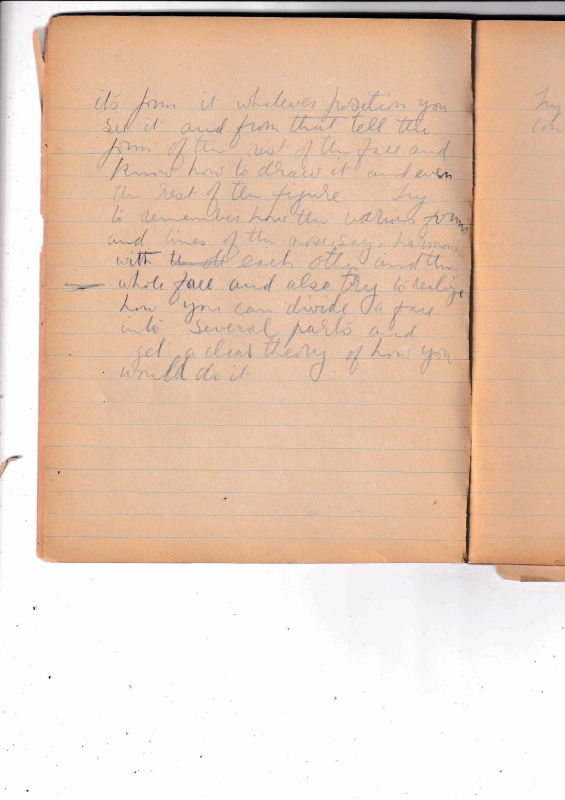 its form it whatever position you
see it and from that tell the
form of the rest of the face and
know how to draw it and even
the rest of the figure Try
to remember how the various forms
and lines of the nose, say, harmonise
with each other and the
whole face and also try to realize
how you can divide a face
into several parts and
get a clear theory of how you
would do it
Try